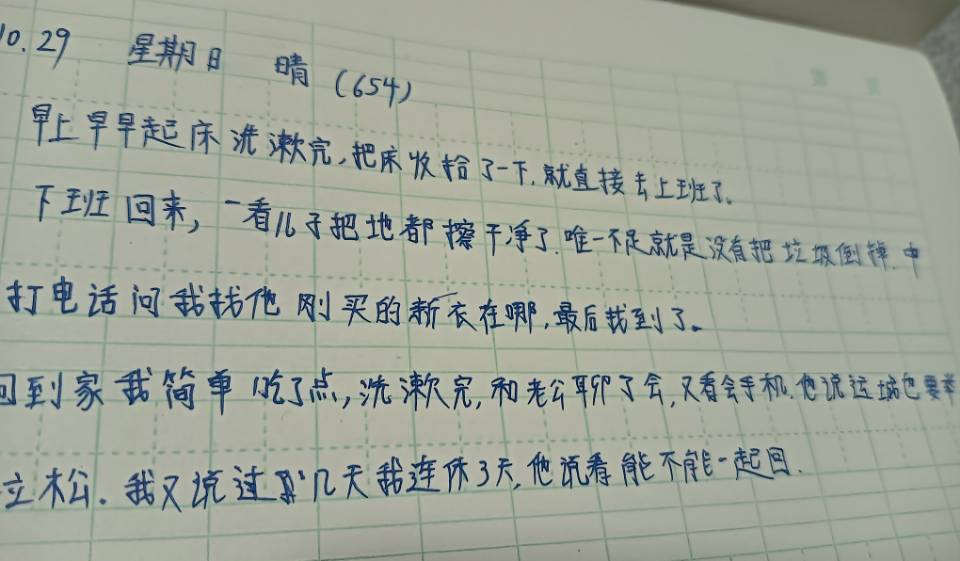 10.29 星期日 晴 (654)
早上早早起床洗漱完,把床收拾了一下,就直接去上班了。
下班回来,一看儿子把地都擦干净了.唯一不足就是没有把垃圾倒掉.中
打电话问我找他刚买的新衣在哪,最后找到了。
回到家我简单吃了点,洗漱完,和老公聊了会,又看会手机.他说运城也要
立松.我又说过几天我连休3天,他说看能不能一起回.